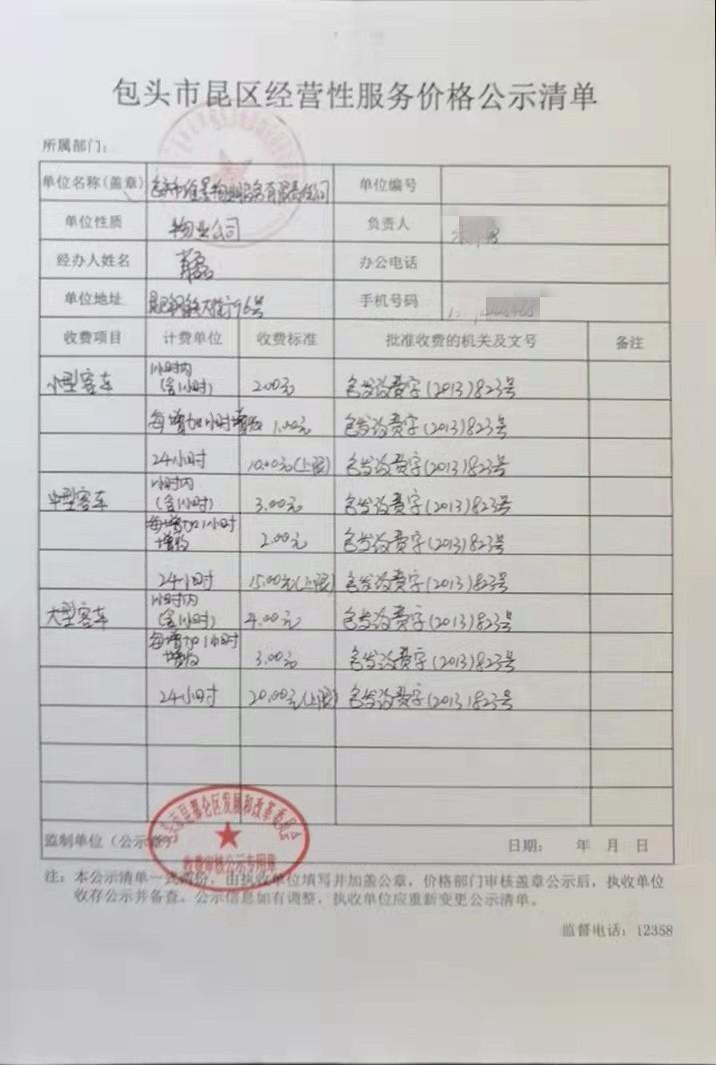 包头市昆区经营性服务价格公示清单
所属部门:
单位名称(盖章) 包头市 物业服务有限责任公司 单位编号
单位性质 物业公司 负责人
经办人姓名 办公电话
单位地址 昆区钢铁大街 96号 手机号码
收费项目 计费单位 收费标准 批准收费的机关及文号 备注
小型客车 1小时内(含1小时) 2.00元 包发改费字(2013)823号
每增加1小时增收 1.00元 包发改费字(2013)823号
24小时 10.00元(上限) 包发改费字(2013)823号
中型客车 1小时内(含1小时) 3.00元 包发改费字(2013)823号
每增加1小时增收 2.00元 包发改费字(2013)823号
24小时 15.00元(上限) 包发改费字(2013)823号
大型客车 1小时内(含1小时) 4.00元 包发改费字(2013)823号
每增加1小时增收 3.00元 包发改费字(2013)823号
24小时 20.00元(上限) 包发改费字(2013)823号
包头市昆都仑区发展和改革委员会
收费审核公示专用章
监制单位(公示章) 日期: 年 月 日
注:本公示清单一式两份,由执收单位填写并加盖公章,价格部门审核盖章公示后,执收单位
收存公示并备查。公示信息如有调整,执收单位应重新变更公示清单。
监督电话:12358